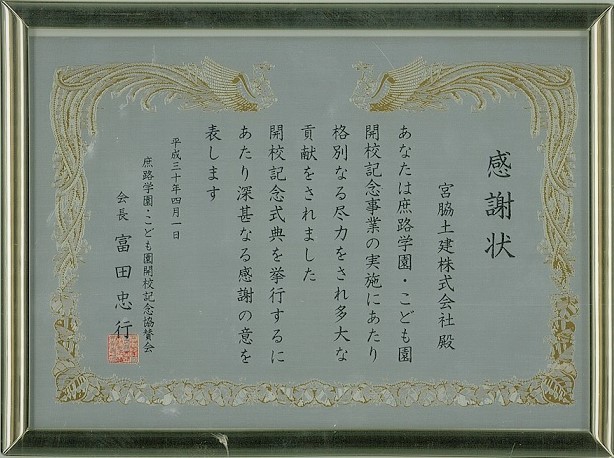 感謝状
宮脇土建株式会社 殿
あなたは庶路学園・こども園
開校記念事業の実施にあたり
格別なる尽力をされ多大な
貢献をされました
開校記念式典を挙行するに
あたり深甚なる感謝の意を
表します
平成三十年四月一日
庶路学園・こども園開校記念協賛会
会長 富田忠行